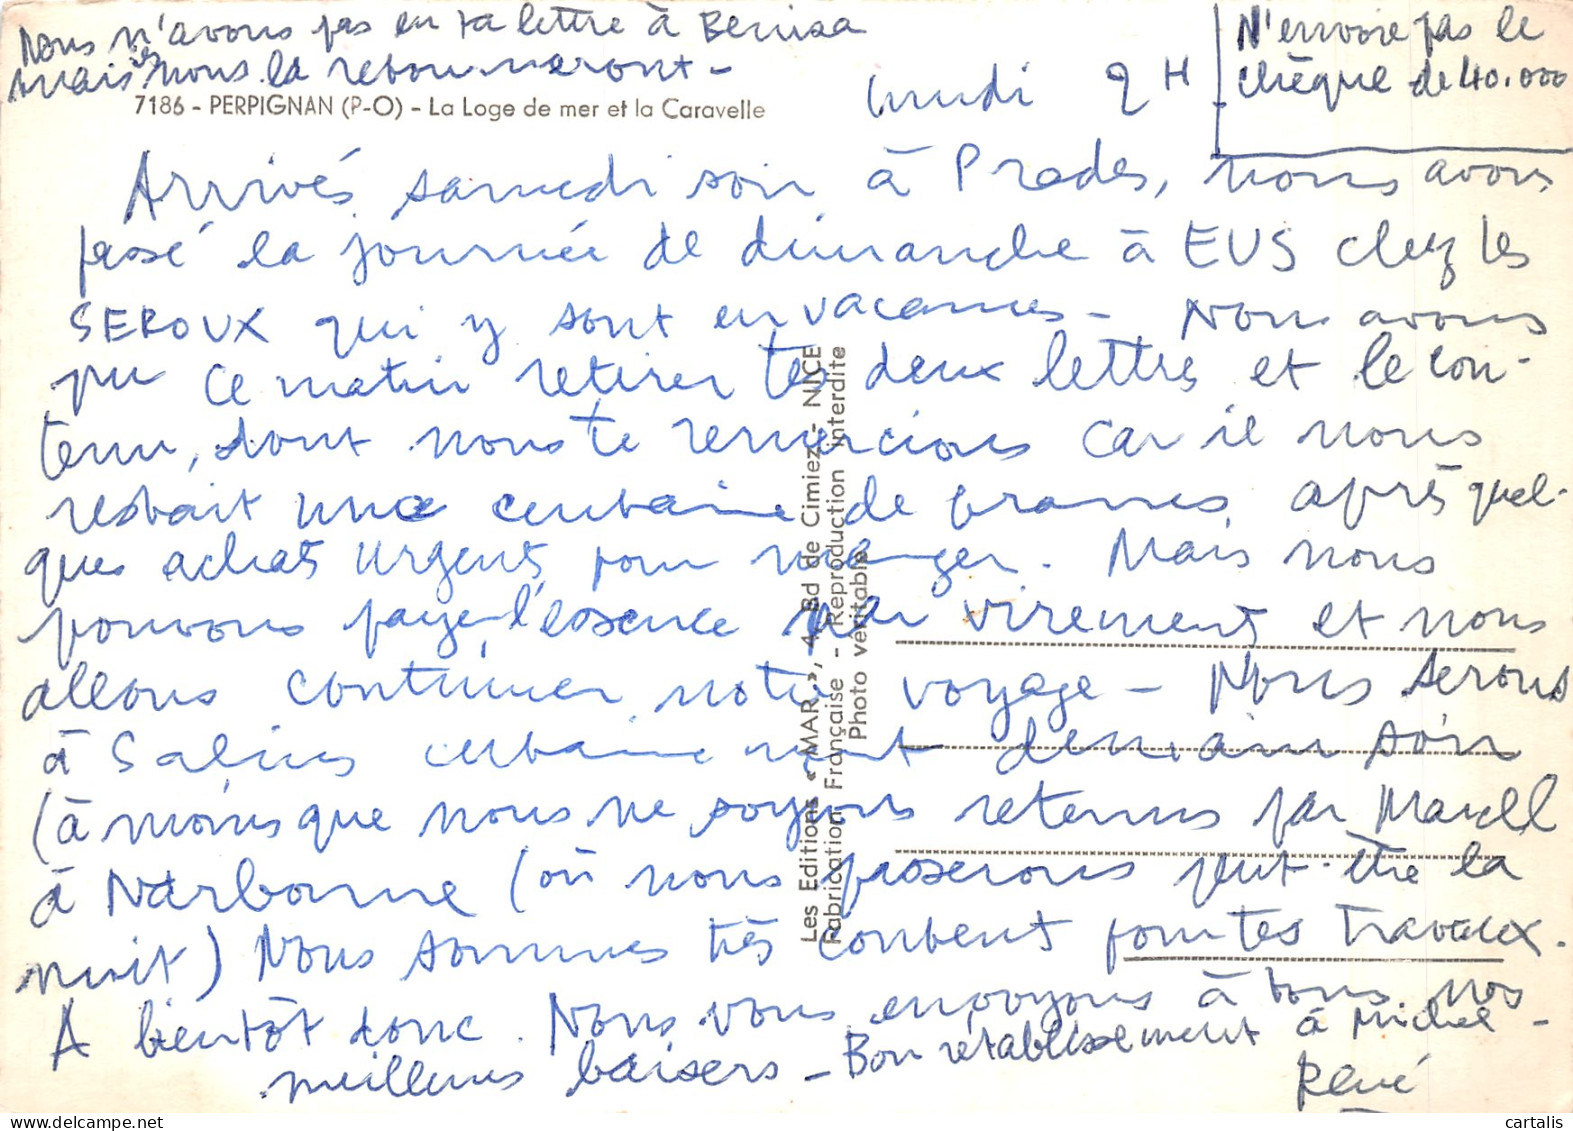 Nous n'avons pas eu ta lettre à Benissa
mais nous la retournerons -
N'envoie pas le
chèque de 40.000
7186 - PERPIGNAN (P-O) - La Loge de mer et la Caravelle
lundi 9 H
Arrivés samedi soir à Prades, nous avons
passé la journée de dimanche à EUS chez les
SEROUX qui y sont en vacances - Nous avons
pu ce matin retirer tes deux lettres et le con-
tenu, dont nous te remercions car il nous
restait une centaine de francs, après quel-
ques achats urgents pour manger. Mais nous
pouvons payer l'essence par virement et nous
allons continuer notre voyage - Nous serons
à Salins certainement demain soir
(à moins que nous ne soyons retenus par Marcel
à Narbonne (où nous passerons peut-être la
nuit) Nous sommes très contents pour tes travaux.
A bientôt donc. Nous vous envoyons à tous nos
meilleurs baisers - Bon rétablissement à Michel -
René
Les Editions « MAR », 4, Bd de Cimiez - NICE
Fabrication Française - Reproduction interdite
Photo véritable
cartalis delcampe.net